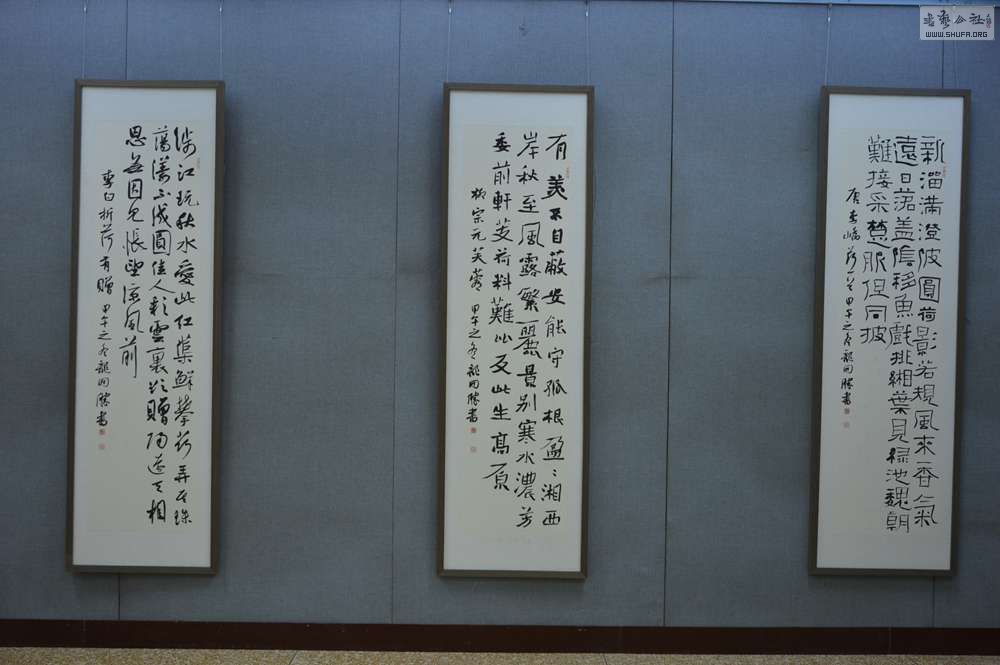 書藝公社
WWW.SHUFA.ORG
新溜滿澄波圓荷影若規風來香氣
遠日落蓋陰移魚戲排緗葉見綠池魏朝
難接采楚服但同披
唐李嶠荷一首甲午之冬龍開勝書
有美不自蔽安能守孤根盈〻湘西
岸秋至風露繁麗景別寒水濃芳
委前軒芰荷料難比反此生高原
柳宗元芙蓉甲午之冬龍開勝書
涉江玩秋水愛此紅蕖鮮攀荷弄其珠
蕩漾不成圓佳人彩雲裏欲贈隔遠天相
思無因見悵望涼風前
李白折荷有贈甲午之冬龍開勝書